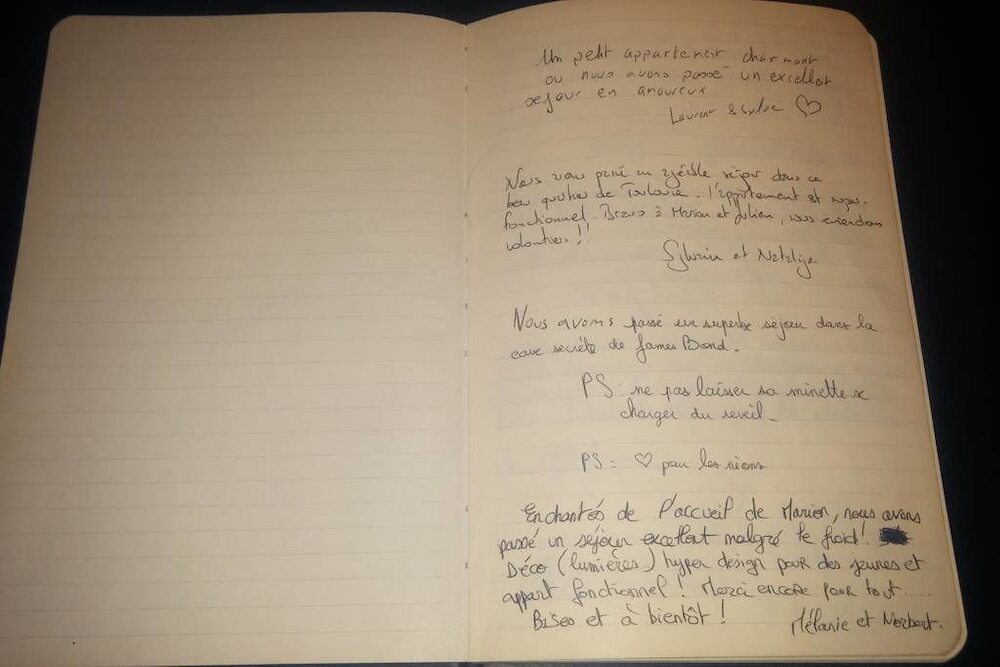 Un petit appartement charmant
ou nous avons passé un excellent
sejour en amoureux
Laurent &
Nous avons passé un agréable séjour dans ce
beau quartier de Toulouse. L'appartement est
fonctionnel. Bravo à Marion et Julien, nous reviendrons
volontiers !!
Sylvain et Nathalie
Nous avons passé un superbe séjour dans la
cave secrète de James Bond.
PS: ne pas laisser sa minette se
charger du reveil_
PS: ♡ pour les néons
Enchantés de l'accueil de Marion, nous avons
passé un séjour excellent malgré le froid!
Déco (lumières) hyper design pour des jeunes et
appart fonctionnel! Merci encore pour tout.....
Bises et à bientôt!
Mélanie et Norbert.